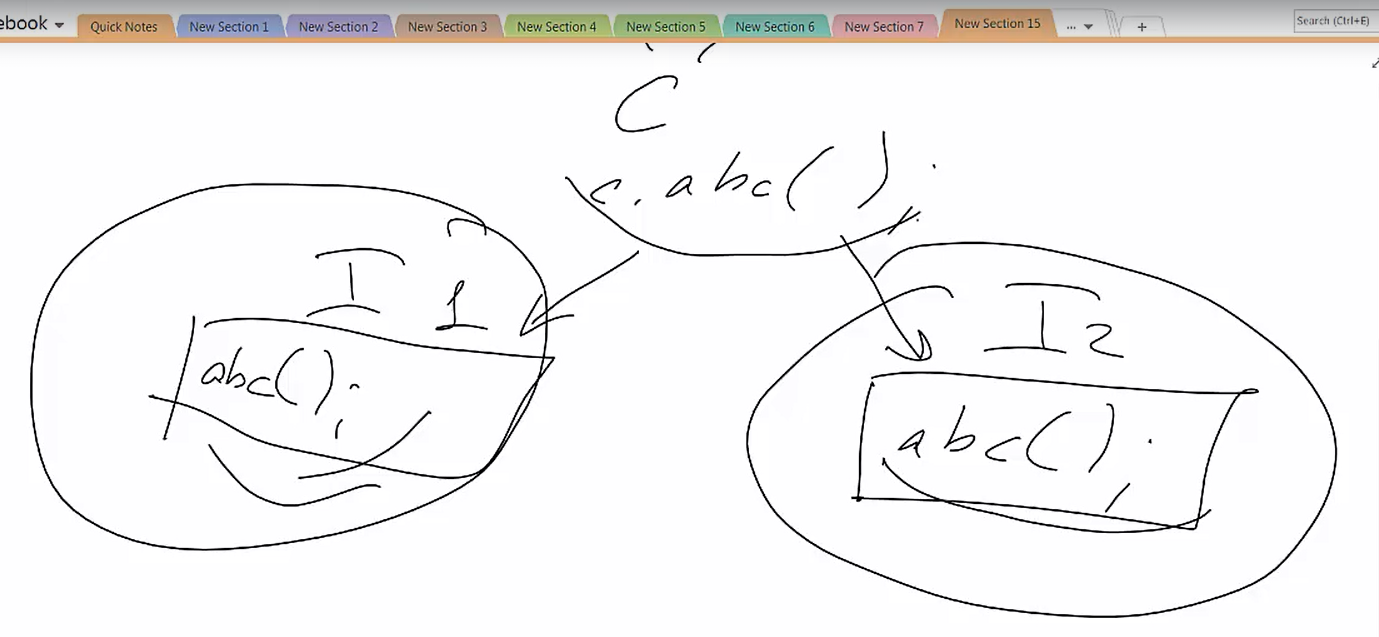 ebook Quick Notes New Section 1 New Section 2 New Section 3 New Section 4 New Section 5 New Section 6 New Section 7 New Section 15 ... + Search (Ctrl+E)
C
c.abc();
I 1
abc();
I2
abc();